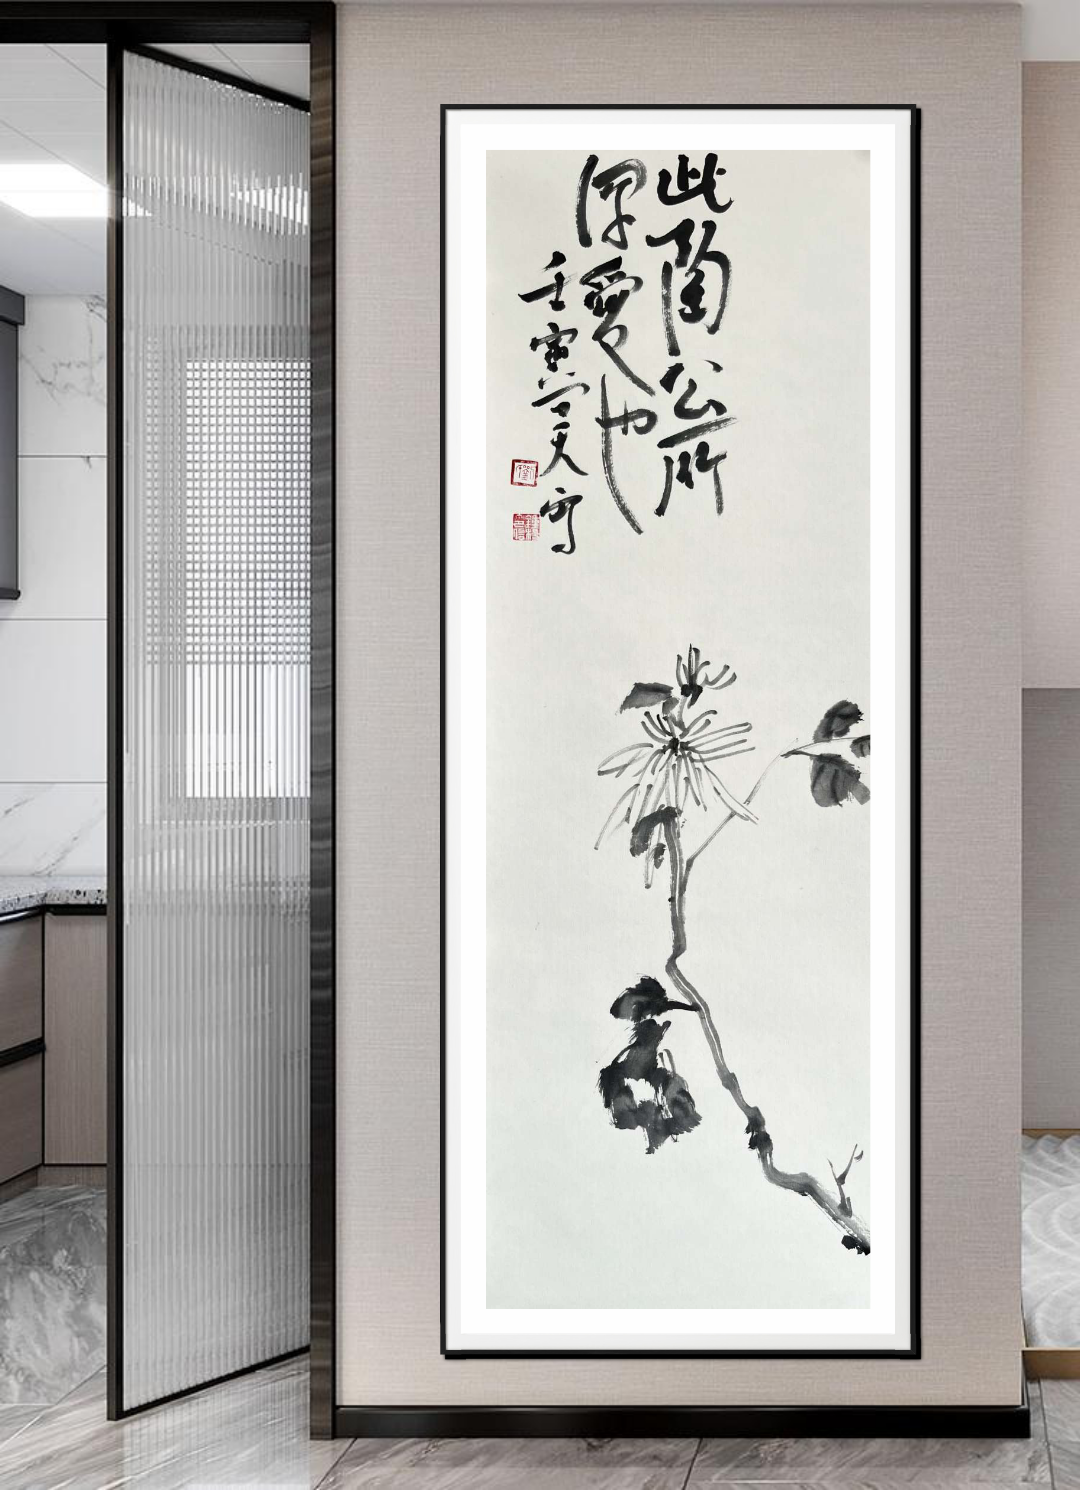 此陶公所
深爱也
壬寅笑天写